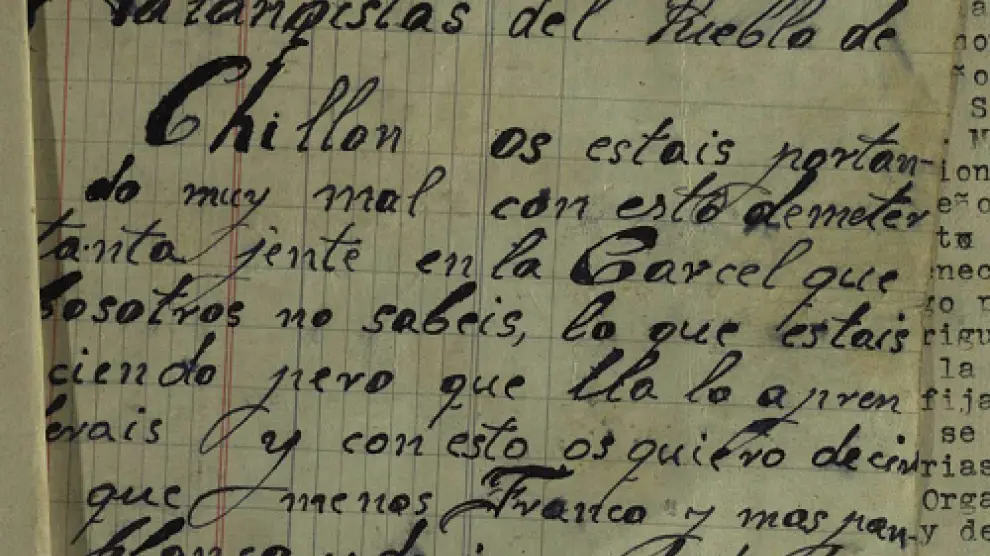 Falangistas del Pueblo de
Chillon os estais portan-
do muy mal con esto demeter
tanta jente en la Carcel que
bosotros no sabeis, lo que estais
ciendo pero que lla lo apren
erais y con esto os quiero decir
que menos Franco y mas pan
blanco y
ion
eño
to
nec
go
rigu
la
fija
se
rias
Orga
y de